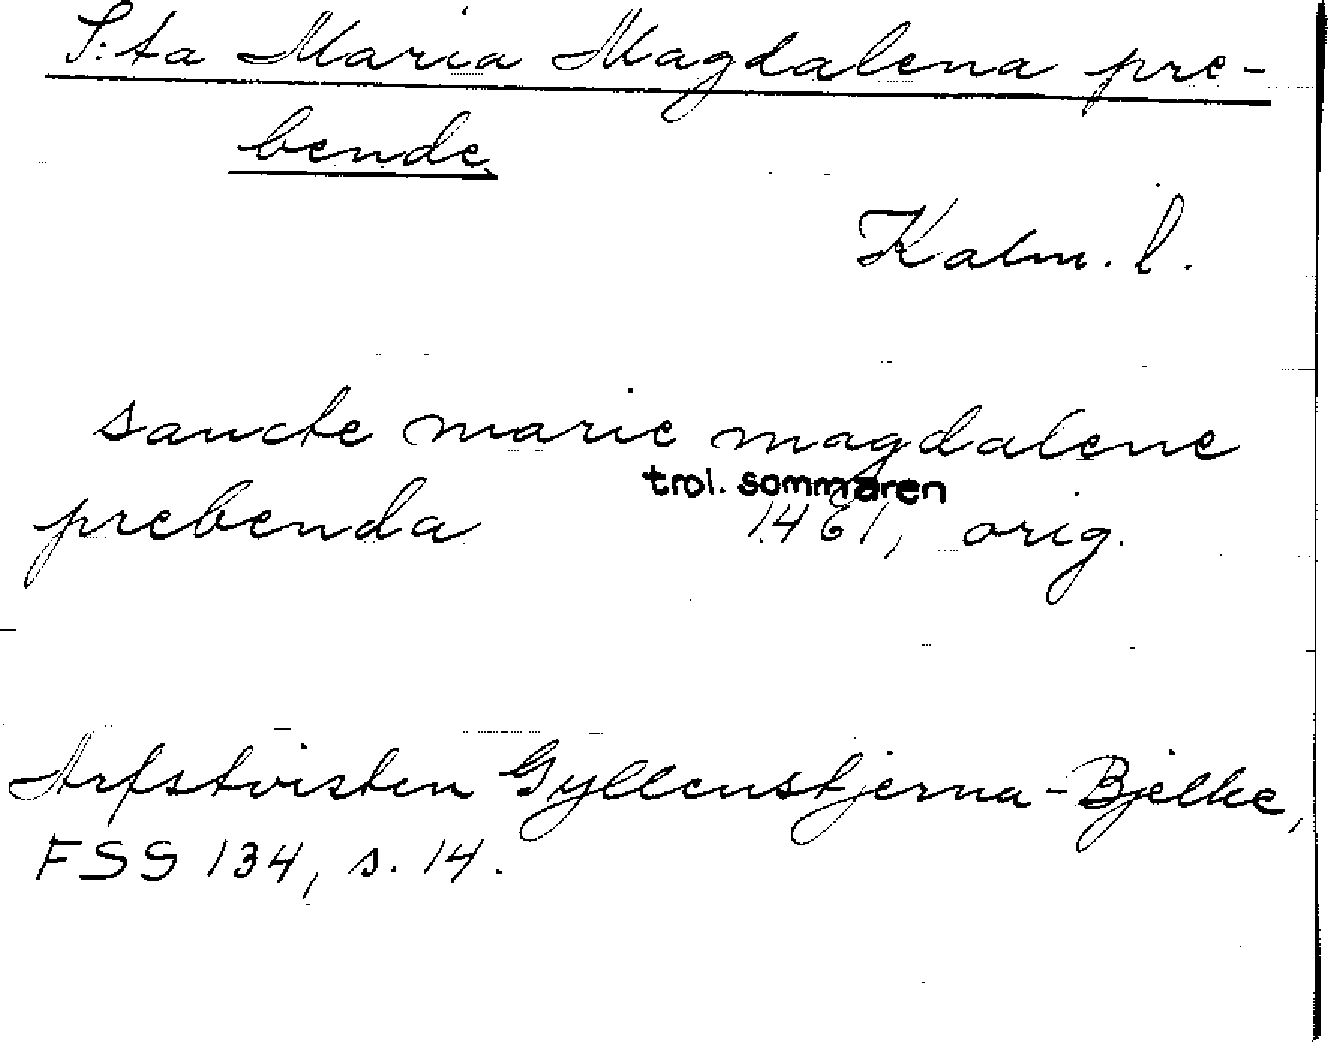 S:ta Maria Magdalena pre-
bende
Kalm. l.
sancte marie magdalene
trol. sommaren
prebenda 1461, orig.
Arfstvisten Gyllenstjerna-Bjelke,
FSS 134, s. 14.